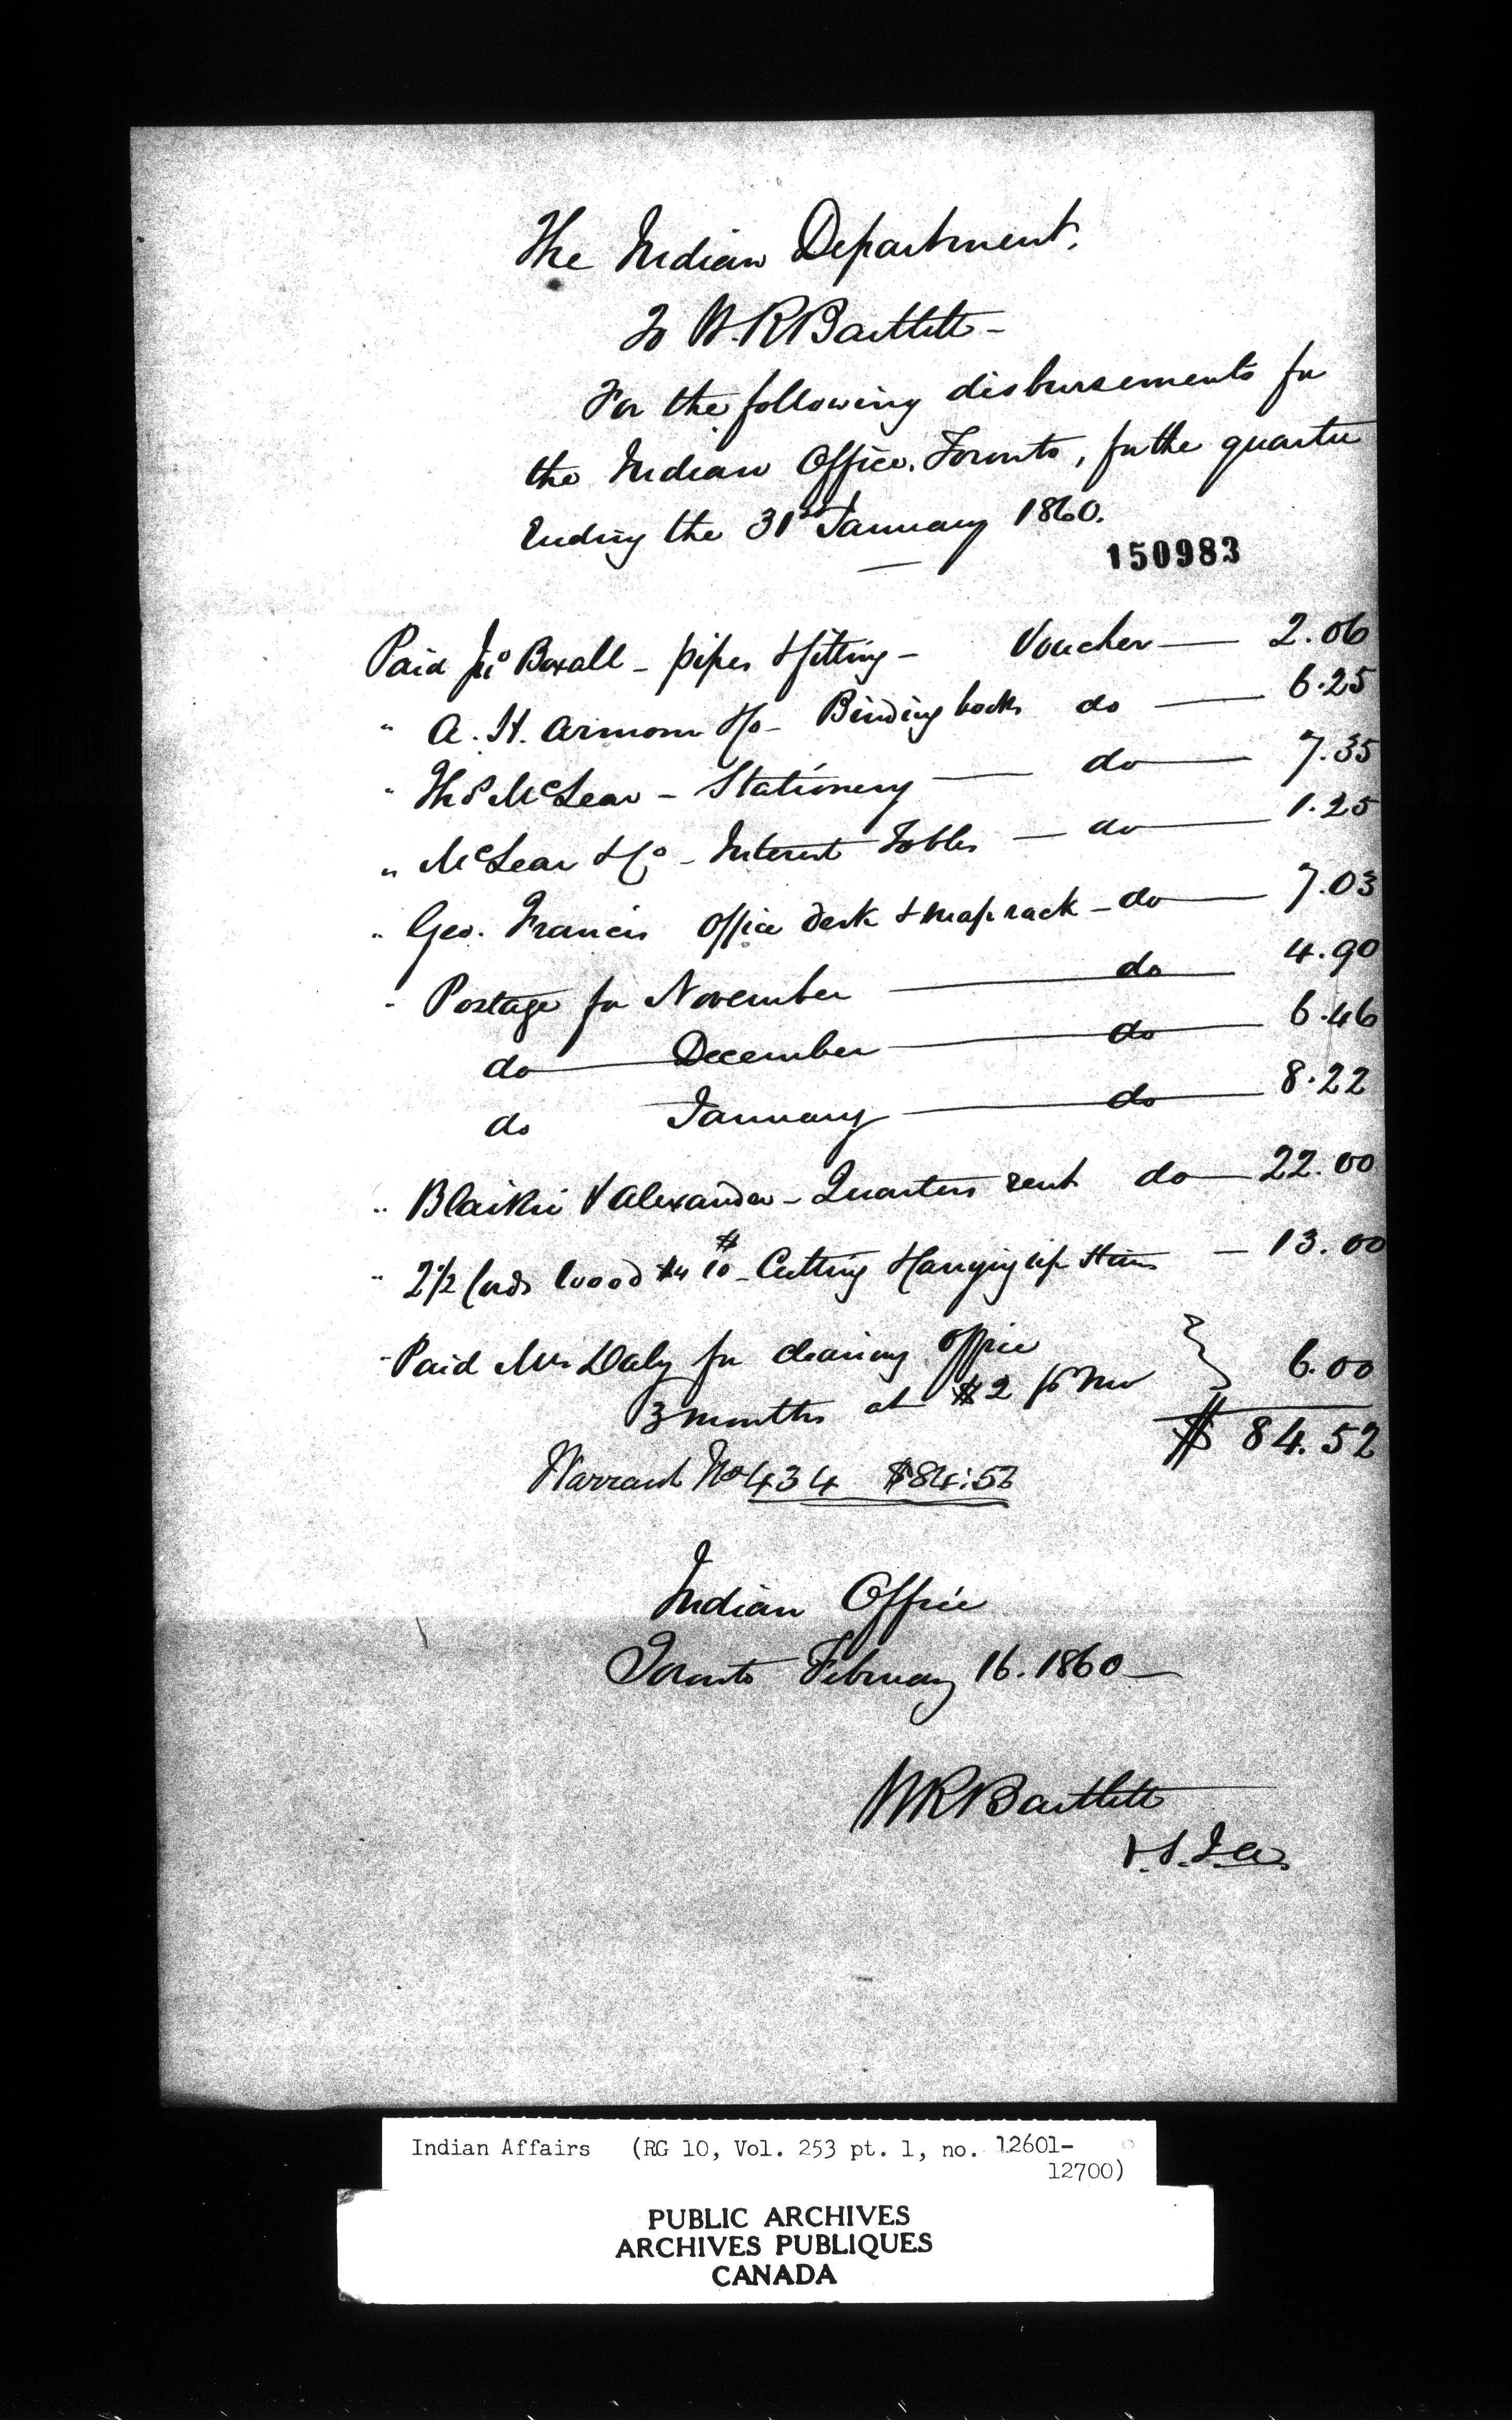 The Indian Department.
To W.R Bartlett -
For the following disbursements for
the Indian Office. Toronto, for the quarter
Ending the 31st January 1860.
150983
Paid Jno Boxall - pipes & fitting - Voucher — 2.06
" A. H. Armour & Co - Binding books do — 6.25
" Thos McLear - Stationery — do — 7.35
" McLear & Co - Interest Tables — do — 1.25
" Geo. Francis Office desk & map rack - do — 7.03
" Postage for November — do — 4.90
do — December — do — 6.46
do January — do — 8.22
" Blaikie & Alexander - Quarters rent do — 22.00
" 2 1/2 Cords Wood $10 - Cutting & Carrying up stairs — 13.00
" Paid Mrs Daly for cleaning office
3 months at $2 pr Mo } 6.00
$ 84.52
Warrant No 434 $84.52
Indian Office
Toronto February 16. 1860 —
WR Bartlett
V.S.I.A.
Indian Affairs (RG 10, Vol. 253 pt. 1, no. 12601-
12700)
PUBLIC ARCHIVES
ARCHIVES PUBLIQUES
CANADA